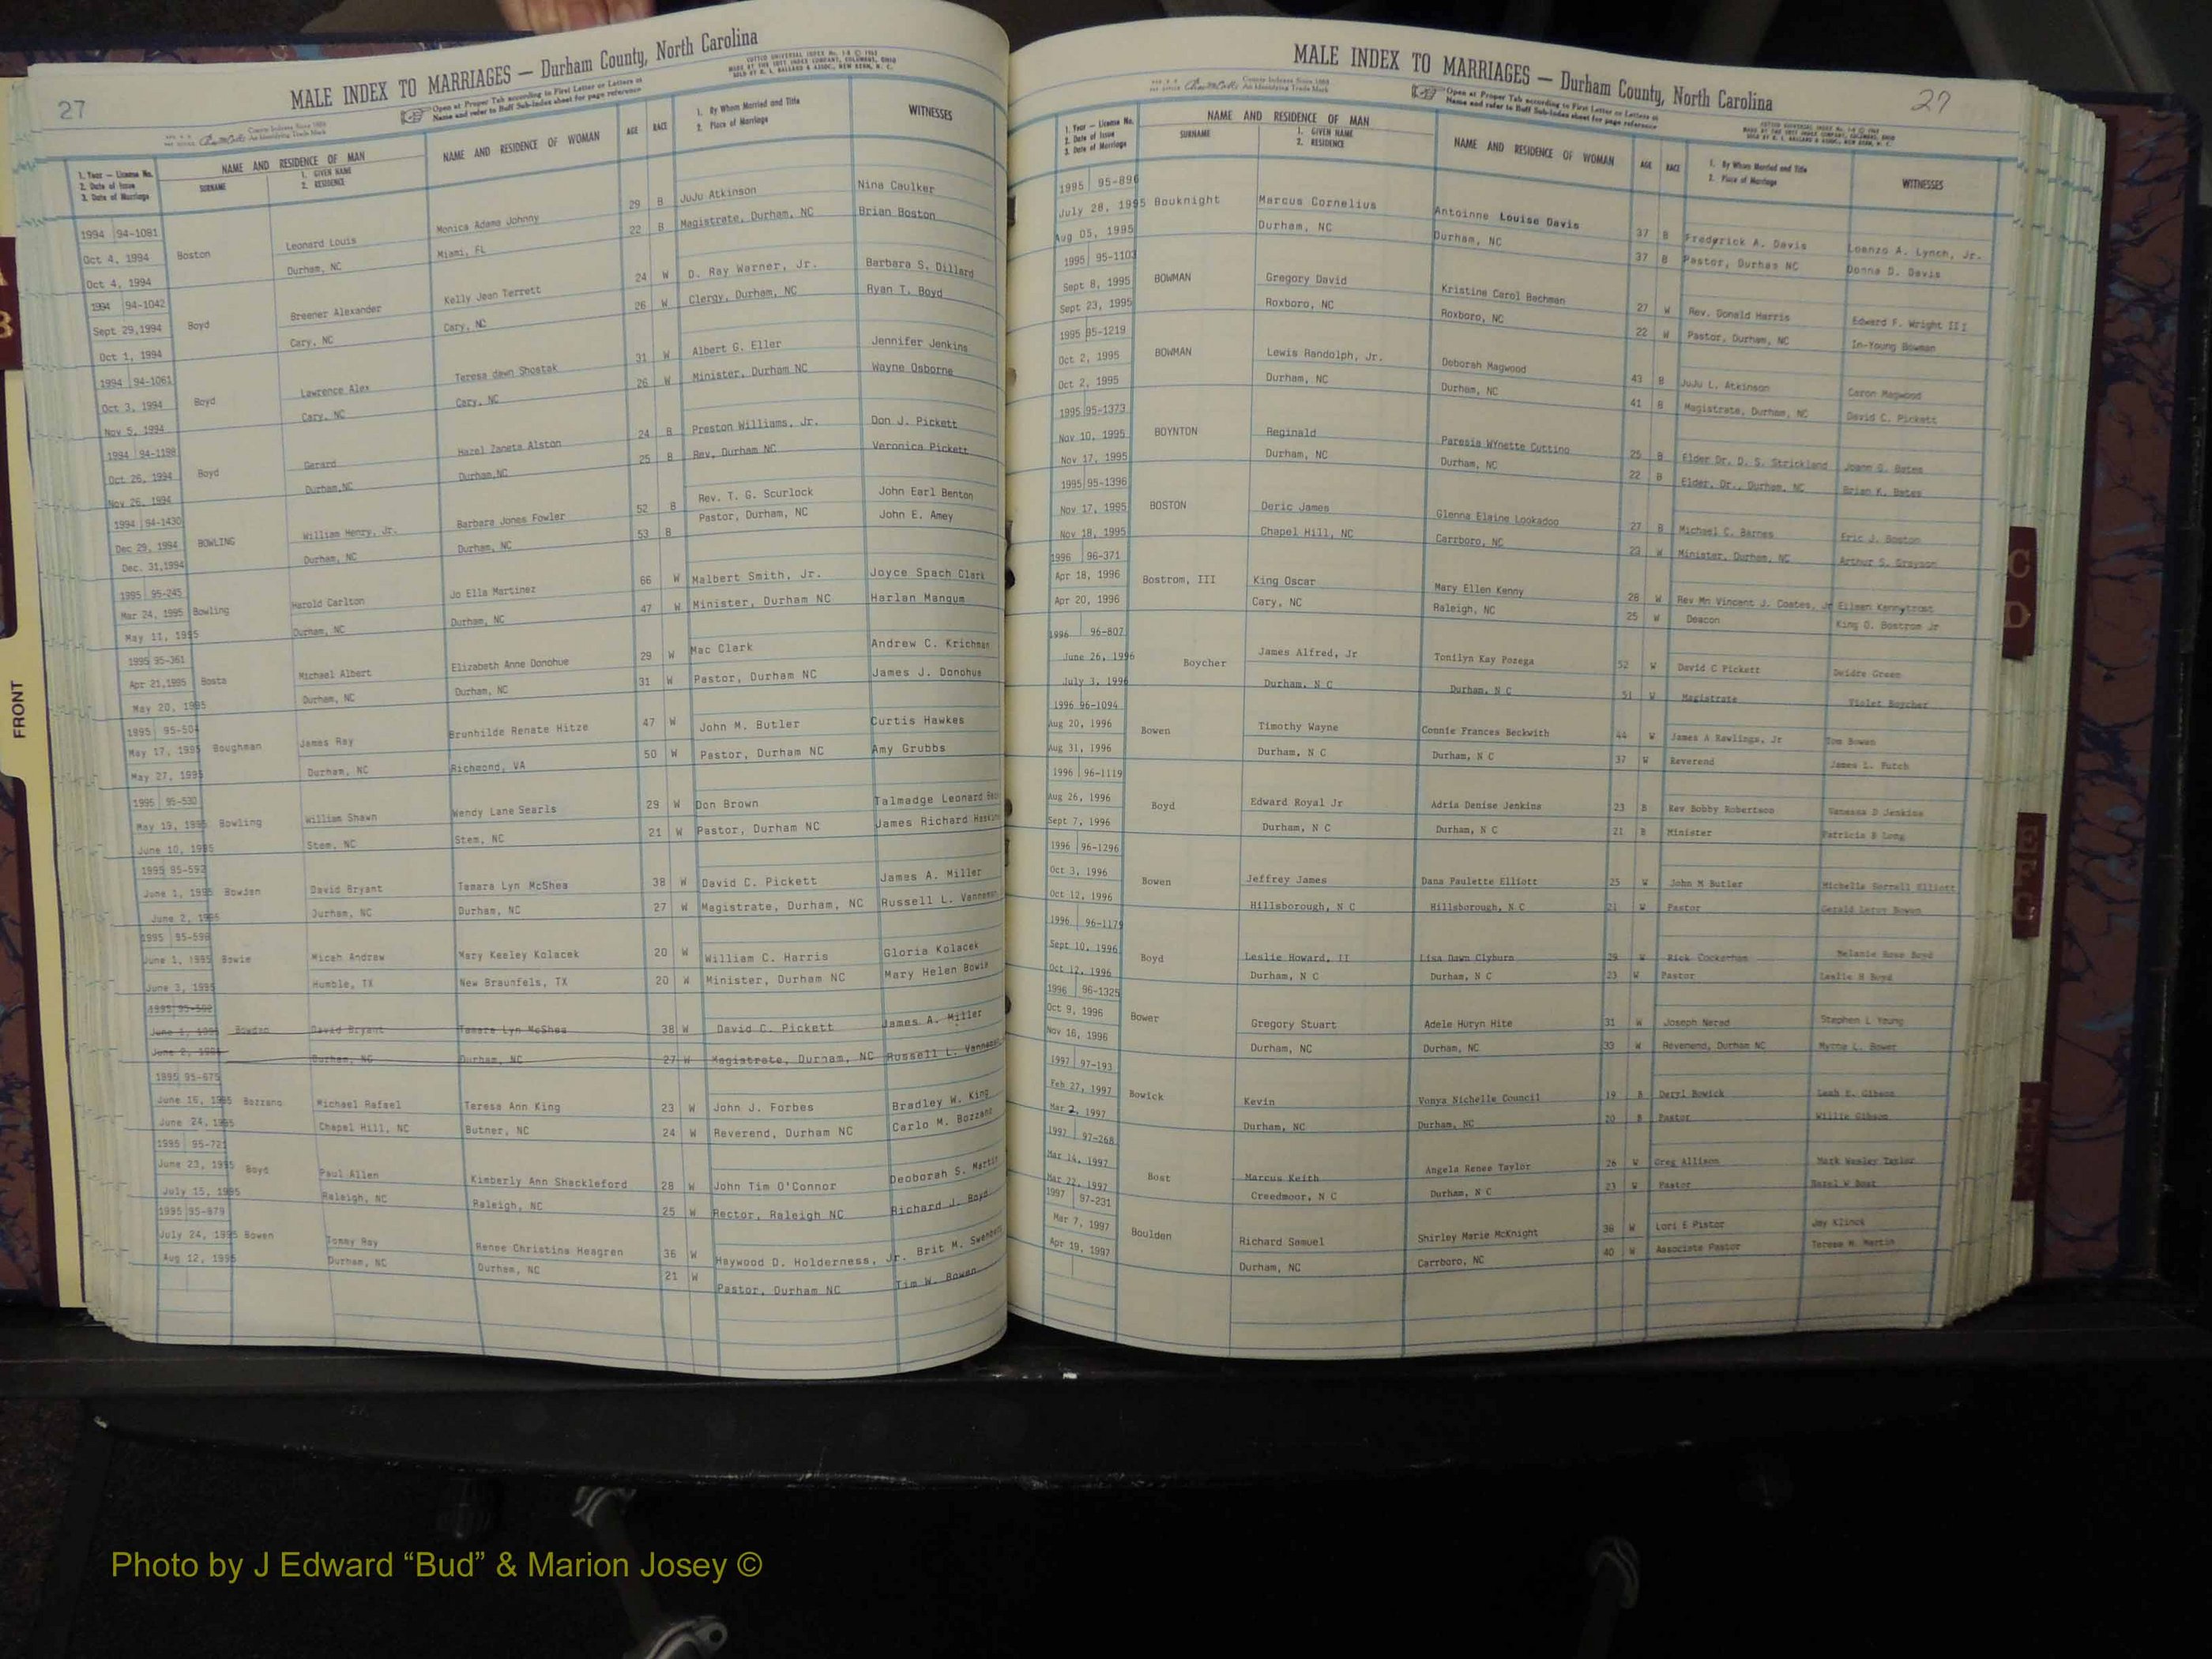 27
MALE INDEX TO MARRIAGES — Durham County, North Carolina
Open at Proper Tab according to First Letter or Letters of
Name and refer to Buff Sub-Index sheet for page reference
1. Year — License No.
2. Date of Issue
3. Date of Marriage
NAME AND RESIDENCE OF MAN
SURNAME
1. GIVEN NAME
2. RESIDENCE
NAME AND RESIDENCE OF WOMAN
AGE
RACE
1. By Whom Married and Title
2. Place of Marriage
WITNESSES
1994 94-1081
Oct 4, 1994 Boston Leonard Louis Monica Adams Johnny 29 B JuJu Atkinson Nina Caulker
Oct 4, 1994 Durham, NC Miami, FL 22 B Magistrate, Durham, NC Brian Boston
1994 94-1042
Sept 29,1994 Boyd Breener Alexander Kelly Jean Terrett 24 W D. Ray Warner, Jr. Barbara S. Dillard
Oct 1, 1994 Cary, NC Cary, NC 26 W Clergy, Durham, NC Ryan T. Boyd
1994 94-1061
Oct 3, 1994 Boyd Lawrence Alex Teresa dawn Shostak 31 W Albert G. Eller Jennifer Jenkins
Nov 5, 1994 Cary, NC Cary, NC 26 W Minister, Durham NC Wayne Osborne
1994 94-1198
Oct 26, 1994 Boyd Gerard Hazel Zaneta Alston 24 B Preston Williams, Jr. Don J. Pickett
Nov 26, 1994 Durham,NC Durham,NC 25 B Rev, Durham NC Veronica Pickett
1994 94-1430
Dec 29, 1994 BOWLING William Henry, Jr. Barbara Jones Fowler 52 B Rev. T. G. Scurlock John Earl Benton
Dec. 31,1994 Durham, NC Durham, NC 53 B Pastor, Durham, NC John E. Amey
1995 95-245
Mar 24, 1995 Bowling Harold Carlton Jo Ella Martinez 66 W Malbert Smith, Jr. Joyce Spach Clark
May 11, 1995 Durham, NC Durham, NC 47 W Minister, Durham NC Harlan Mangum
1995 95-361
Apr 21,1995 Bosta Michael Albert Elizabeth Anne Donohue 29 W Mac Clark Andrew C. Krichman
May 20, 1995 Durham, NC Durham, NC 31 W Pastor, Durham NC James J. Donohue
1995 95-504
May 17, 1995 Boughman James Ray Brunhilde Renate Hitze 47 W John M. Butler Curtis Hawkes
May 27, 1995 Durham, NC Richmond, VA 50 W Pastor, Durham NC Amy Grubbs
1995 95-530
May 19, 1995 Bowling William Shawn Wendy Lane Searls 29 W Don Brown Talmadge Leonard
June 10, 1995 Stem, NC Stem, NC 21 W Pastor, Durham NC James Richard
1995 95-592
June 1, 1995 Bowden David Bryant Tamara Lyn McShea 38 W David C. Pickett James A. Miller
June 2, 1995 Durham, NC Durham, NC 27 W Magistrate, Durham, NC Russell L. Vanneman
1995 95-598
June 1, 1995 Bowie Micah Andrew Mary Keeley Kolacek 20 W William C. Harris Gloria Kolacek
June 3, 1995 Humble, TX New Braunfels, TX 20 W Minister, Durham NC Mary Helen Bowie
1995 95-592
June 1, 1995 Bowden David Bryant Tamara Lyn McShea 38 W David C. Pickett James A. Miller
June 2, 1995 Durham, NC Durham, NC 27 W Magistrate, Durham, NC Russell L. Vanneman
1995 95-675
June 16, 1995 Bozzano Michael Rafael Teresa Ann King 23 W John J. Forbes Bradley W. King
June 24, 1995 Chapel Hill, NC Butner, NC 24 W Reverend, Durham NC Carlo M. Bozzano
1995 95-721
June 23, 1995 Boyd Paul Allen Kimberly Ann Shackleford 28 W John Tim O'Connor Deoborah S. Martin
July 15, 1995 Raleigh, NC Raleigh, NC 25 W Rector, Raleigh NC Richard J. Boyd
1995 95-879
July 24, 1995 Bowen Tommy Ray Renee Christina Heagren 36 W Haywood D. Holderness, Jr. Brit M. Swenberg
Aug 12, 1995 Durham, NC Durham, NC 21 W Pastor, Durham NC Tim W. Bowen
27
MALE INDEX TO MARRIAGES — Durham County, North Carolina
Open at Proper Tab according to First Letter or Letters of
Name and refer to Buff Sub-Index sheet for page reference
1. Year — License No.
2. Date of Issue
3. Date of Marriage
NAME AND RESIDENCE OF MAN
SURNAME
1. GIVEN NAME
2. RESIDENCE
NAME AND RESIDENCE OF WOMAN
AGE
RACE
1. By Whom Married and Title
2. Place of Marriage
WITNESSES
1995 95-896
July 28, 1995 Bouknight Marcus Cornelius Antoinne Louise Davis 37 B Frederick A. Davis Loenzo A. Lynch, Jr.
Aug 05, 1995 Durham, NC Durham, NC 37 B Pastor, Durham NC Donna D. Davis
1995 95-1103
Sept 8, 1995 BOWMAN Gregory David Kristine Carol Bachman 27 W Rev. Donald Harris Edward F. Wright III
Sept 23, 1995 Roxboro, NC Roxboro, NC 22 W Pastor, Durham, NC In-Young Bowman
1995 95-1219
Oct 2, 1995 BOWMAN Lewis Randolph, Jr. Deborah Magwood 43 B JuJu L. Atkinson Caron Magwood
Oct 2, 1995 Durham, NC Durham, NC 41 B Magistrate, Durham, NC David C. Pickett
1995 95-1373
Nov 10, 1995 BOYNTON Reginald Paresia WYnette Cuttino 25 B Elder Dr. D. S. Strickland Joann G. Bates
Nov 17, 1995 Durham, NC Durham, NC 22 B Elder, Dr., Durham, NC Brian K. Bates
1995 95-1396
Nov 17, 1995 BOSTON Deric James Glenna Elaine Lookadoo 27 B Michael C. Barnes Eric J. Boston
Nov 18, 1995 Chapel Hill, NC Carrboro, NC 23 W Minister, Durham, NC Arthur S. Grayson
1996 96-371
Apr 18, 1996 Bostrom, III King Oscar Mary Ellen Kenny 28 W Rev Mn Vincent J. Coates, Jr Eileen Kennytrost
Apr 20, 1996 Cary, NC Raleigh, NC 25 W Deacon King O. Bostrom Jr
1996 96-807
June 26, 1996 Boycher James Alfred, Jr Tonilyn Kay Pozega 52 W David C Pickett Deidre Green
July 3, 1996 Durham, N C Durham, N C 51 W Magistrate Violet Boycher
1996 96-1094
Aug 20, 1996 Bowen Timothy Wayne Connie Frances Beckwith 44 W James A Rawlings, Jr Tom Bowen
Aug 31, 1996 Durham, N C Durham, N C 37 W Reverend James L. Futch
1996 96-1119
Aug 26, 1996 Boyd Edward Royal Jr Adria Denise Jenkins 23 B Rev Bobby Robertson Vanessa D Jenkins
Sept 7, 1996 Durham, N C Durham, N C 21 B Minister Patricia B Long
1996 96-1296
Oct 3, 1996 Bowen Jeffrey James Dana Paulette Elliott 25 W John M Butler Michelle Sorrell Elliott
Oct 12, 1996 Hillsborough, N C Hillsborough, N C 21 W Pastor Gerald Leron Bowen
1996 96-1179
Sept 10, 1996 Boyd Leslie Howard, II Lisa Dawn Clyburn 29 W Rick Cockerham Melanie Rose Boyd
Oct 12, 1996 Durham, N C Durham, N C 23 W Pastor Leslie H Boyd
1996 96-1325
Oct 9, 1996 Bower Gregory Stuart Adele Huryn Hite 31 W Joseph Nerad Stephen L Young
Nov 16, 1996 Durham, NC Durham, NC 33 W Reverend, Durham NC Myrne L. Bower
1997 97-193
Feb 27, 1997 Bowick Kevin Vonya Nichelle Council 19 B Daryl Bowick Leah E. Gibson
Mar 2, 1997 Durham, NC Durham, NC 20 B Pastor Willie Gibson
1997 97-268
Mar 14, 1997 Bost Marcus Keith Angela Renee Taylor 26 W Greg Allison Mark Wesley Taylor
Mar 22, 1997 Creedmoor, N C Durham, N C 23 W Pastor Hazel W Bost
1997 97-231
Mar 7, 1997 Boulden Richard Samuel Shirley Marie McKnight 38 W Lori E Pistor Jay Klinck
Apr 19, 1997 Durham, NC Carrboro, NC 40 W Associate Pastor Terese M. Martin
FRONT
C
D
Photo by J Edward “Bud” & Marion Josey ©